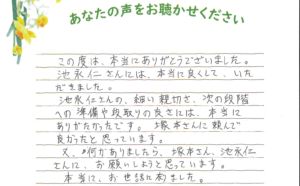 あなたの声をお聴かせください
この度は、本当にありがとうございました。
池永仁さんには、本当に良くして、いた
だきました。
池永仁さんの、細い親切さ、次の段階
への準備や段取りの良さには、本当に
ありがたかったです。塚本さんに頼んで
良かったと思っています。
又、何かありましたら、塚本さん、池永仁
さんに、お願いしようと思っています。
本当に、お世話に成りました。